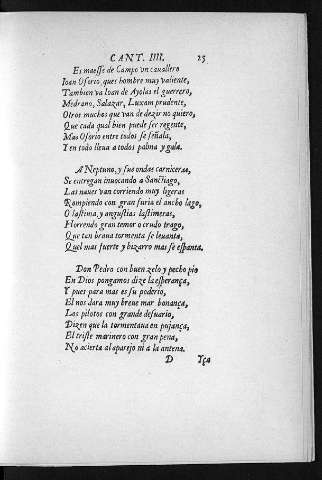 CANT. IIII. 25
Es maesse de Campo vn cauallero
Ioan Osorio, ques hombre muy valiente,
Tambien va Ioan de Ayolas el guerrero,
Medrano, Salazar, Luxam prudente,
Otros muchos que van de dezir no quiero,
Que cada qual bien puede ser regente,
Mas Osorio entre todos se señala,
Y en todo lleua a todos palma y gala.
A Neptuno, y sus ondas carniceras,
Se entregan inuocando a Sanctiago,
Las naues van corriendo muy ligeras
Rompiendo con gran furia el ancho lago,
O lastima, y angustias lastimeras,
Horrendo gran temor o crudo trago,
Que tan braua tormenta se leuanta,
Quel mas fuerte y bizarro mas se espanta.
Don Pedro con buen zelo y pecho pio
En Dios pongamos dize la esperança,
Y pues para mas es su poderio,
El nos dara muy breue mar bonança,
Los pilotos con grande desuario,
Dizen que la tormentaua en pujança,
El triste marinero con gran pena,
No acierta al aparejo ni a la antena.
D Yça